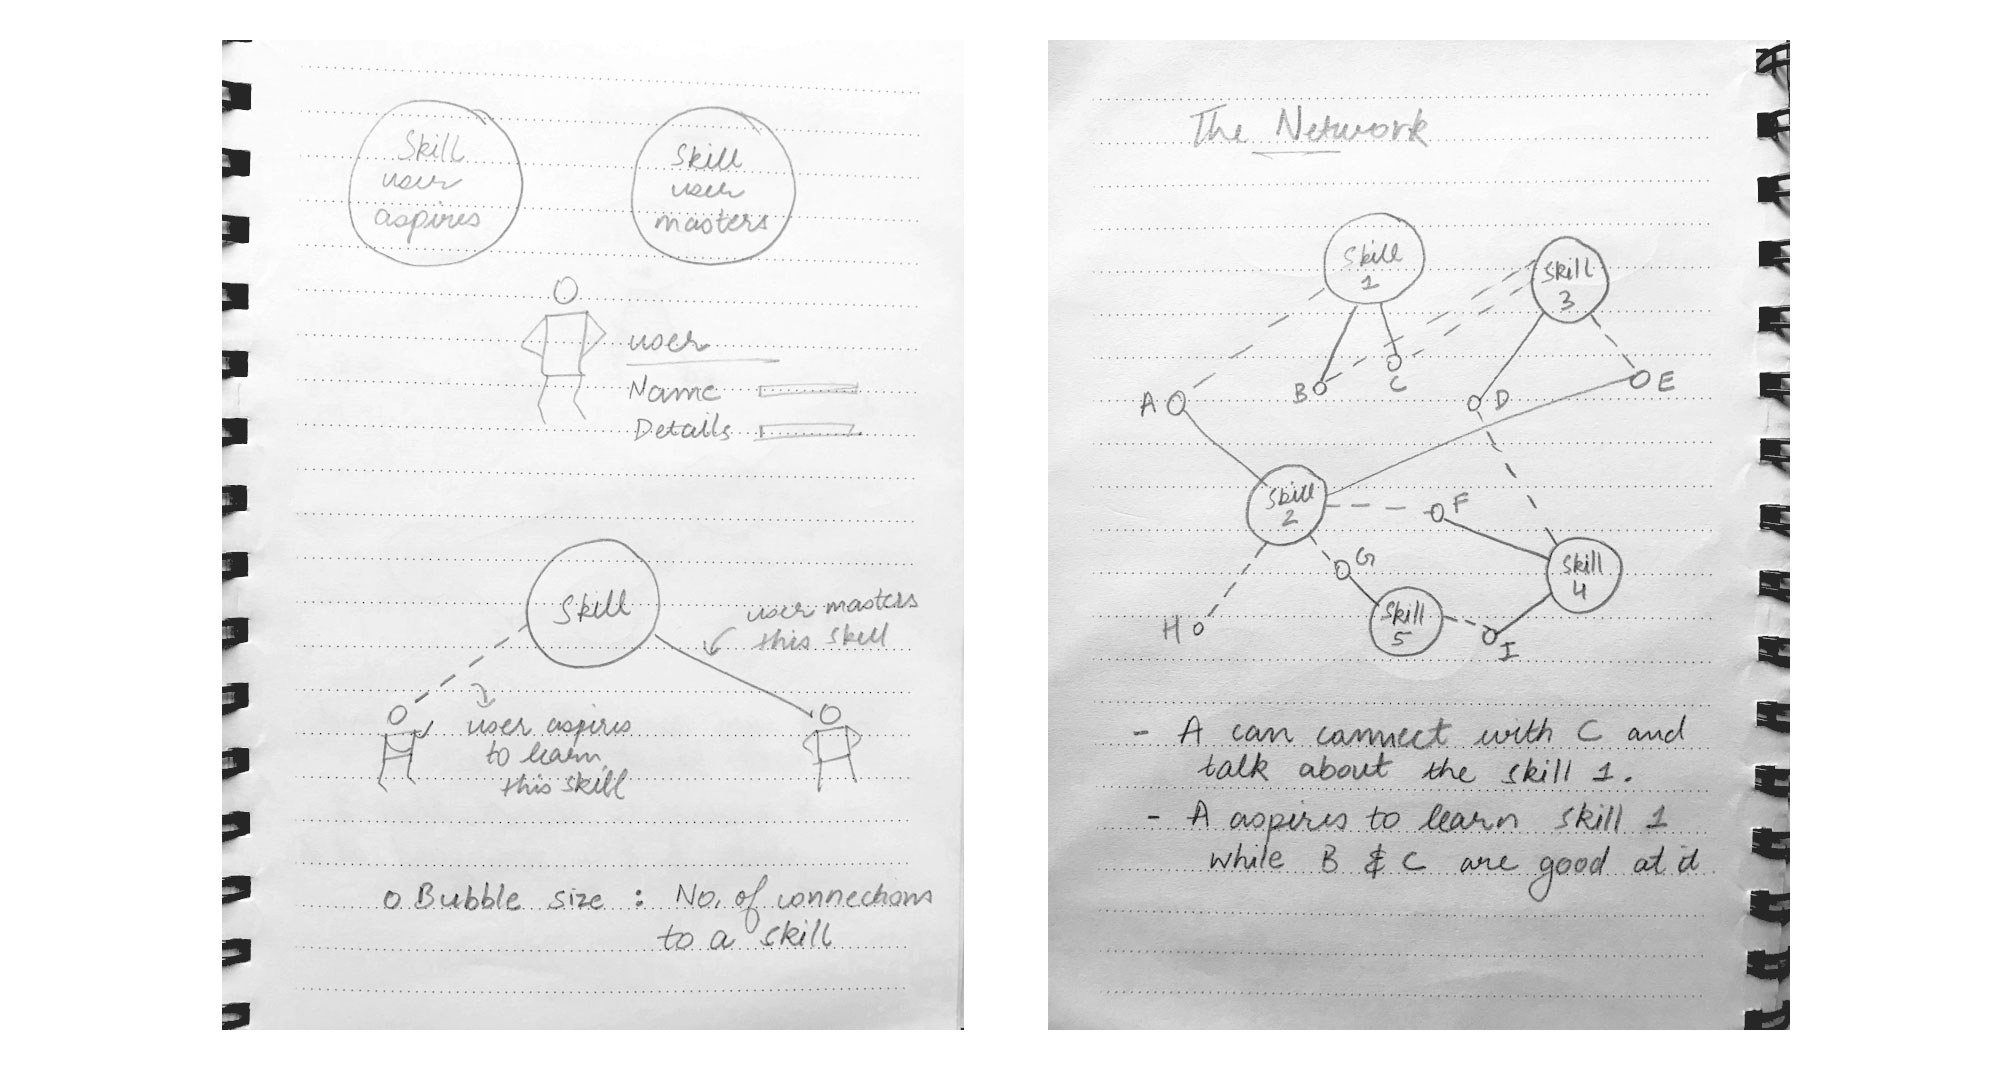 Skill
user
aspires
Skill
user
masters
user
Name
Details
Skill
user masters
this skill
user aspires
to learn
this skill
o Bubble size : No. of connections
to a skill
The Network
Skill
1
Skill
3
A
B
C
D
E
Skill
2
F
G
Skill
4
H
Skill
5
I
- A can connect with C and
talk about the skill 1.
- A aspires to learn skill 1
while B & C are good at it